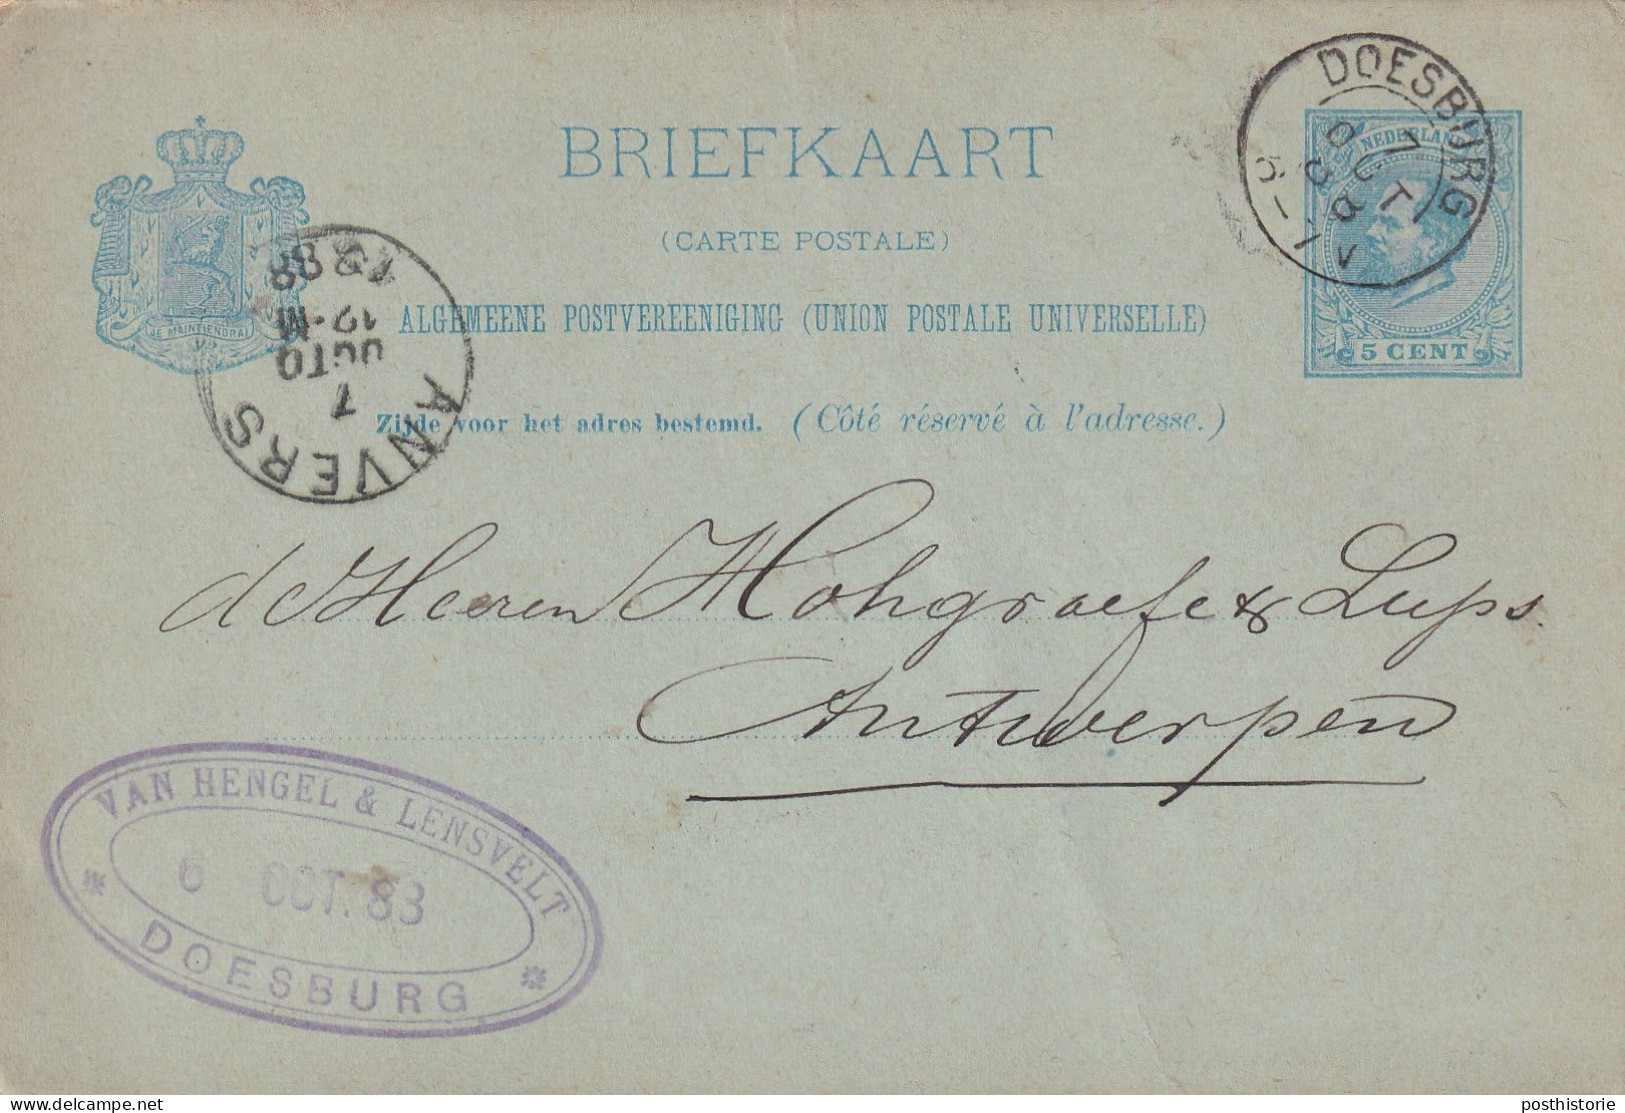 BRIEFKAART
(CARTE POSTALE)
ALGEMEENE POSTVEREENIGING (UNION POSTALE UNIVERSELLE)
Zijde voor het adres bestemd. (Côté réservé à l'adresse.)
JE MAINTIENDRAI
NEDERLAND
5 CENT
DOESBURG
7 OCT
ANVERS
7
OCTO
12-M
1883
de Heeren Hohgraefe & Lups.
Antwerpen
VAN HENGEL & LENSVELT
6 OCT. 83
DOESBURG
posthistorie